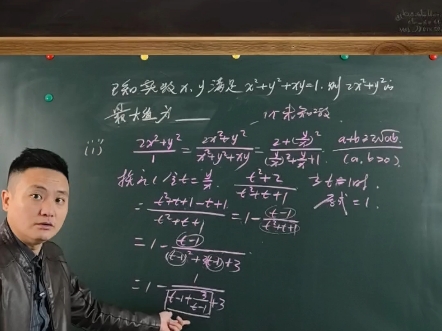 已知实数x、y满足x²+y²+xy=1,则2x²+y²的
最大值为______
(1) \frac{2x²+y²}{1} = \frac{2x²+y²}{x²+y²+xy} = \frac{2+(\frac{y}{x})²}{(\frac{y}{x})²+\frac{y}{x}+1} a+b≥2√ab
(a,b>0)
换元(令t=\frac{y}{x} \frac{t²+2}{t²+t+1} 当t=1时,
= \frac{t²+t+1-t+1}{t²+t+1} = 1-\frac{t-1}{t²+t+1} 原式=1.
= 1-\frac{t-1}{(t-1)²+3(t-1)+3}
= 1-\frac{1}{t-1+\frac{3}{t-1}+3}